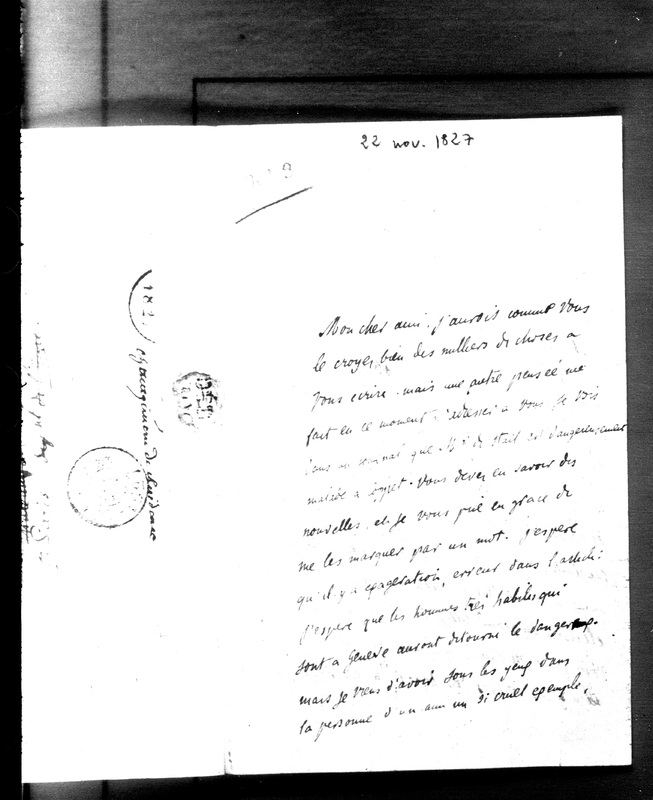 22 nov. 1827
Mon cher ami. j'aurois comme Vous
le croyez bien des milliers de choses a
Vous ecrire. mais une autre pensée me
fait en ce moment m'adresser a Vous. Je Vois
dans un journal que Mr de Stael est dangereusement
malade a Coppet. Vous devez en savoir des
nouvelles et Je Vous prie en grace de
me les marquer par un mot. J'espere
qu'il y a exageration, erreur dans l'article.
J'espere que les hommes très habiles qui
sont a Geneve auront detourné le danger.
mais Je Viens d'avoir sous les yeux dans
la personne d'un ami un si cruel exemple,